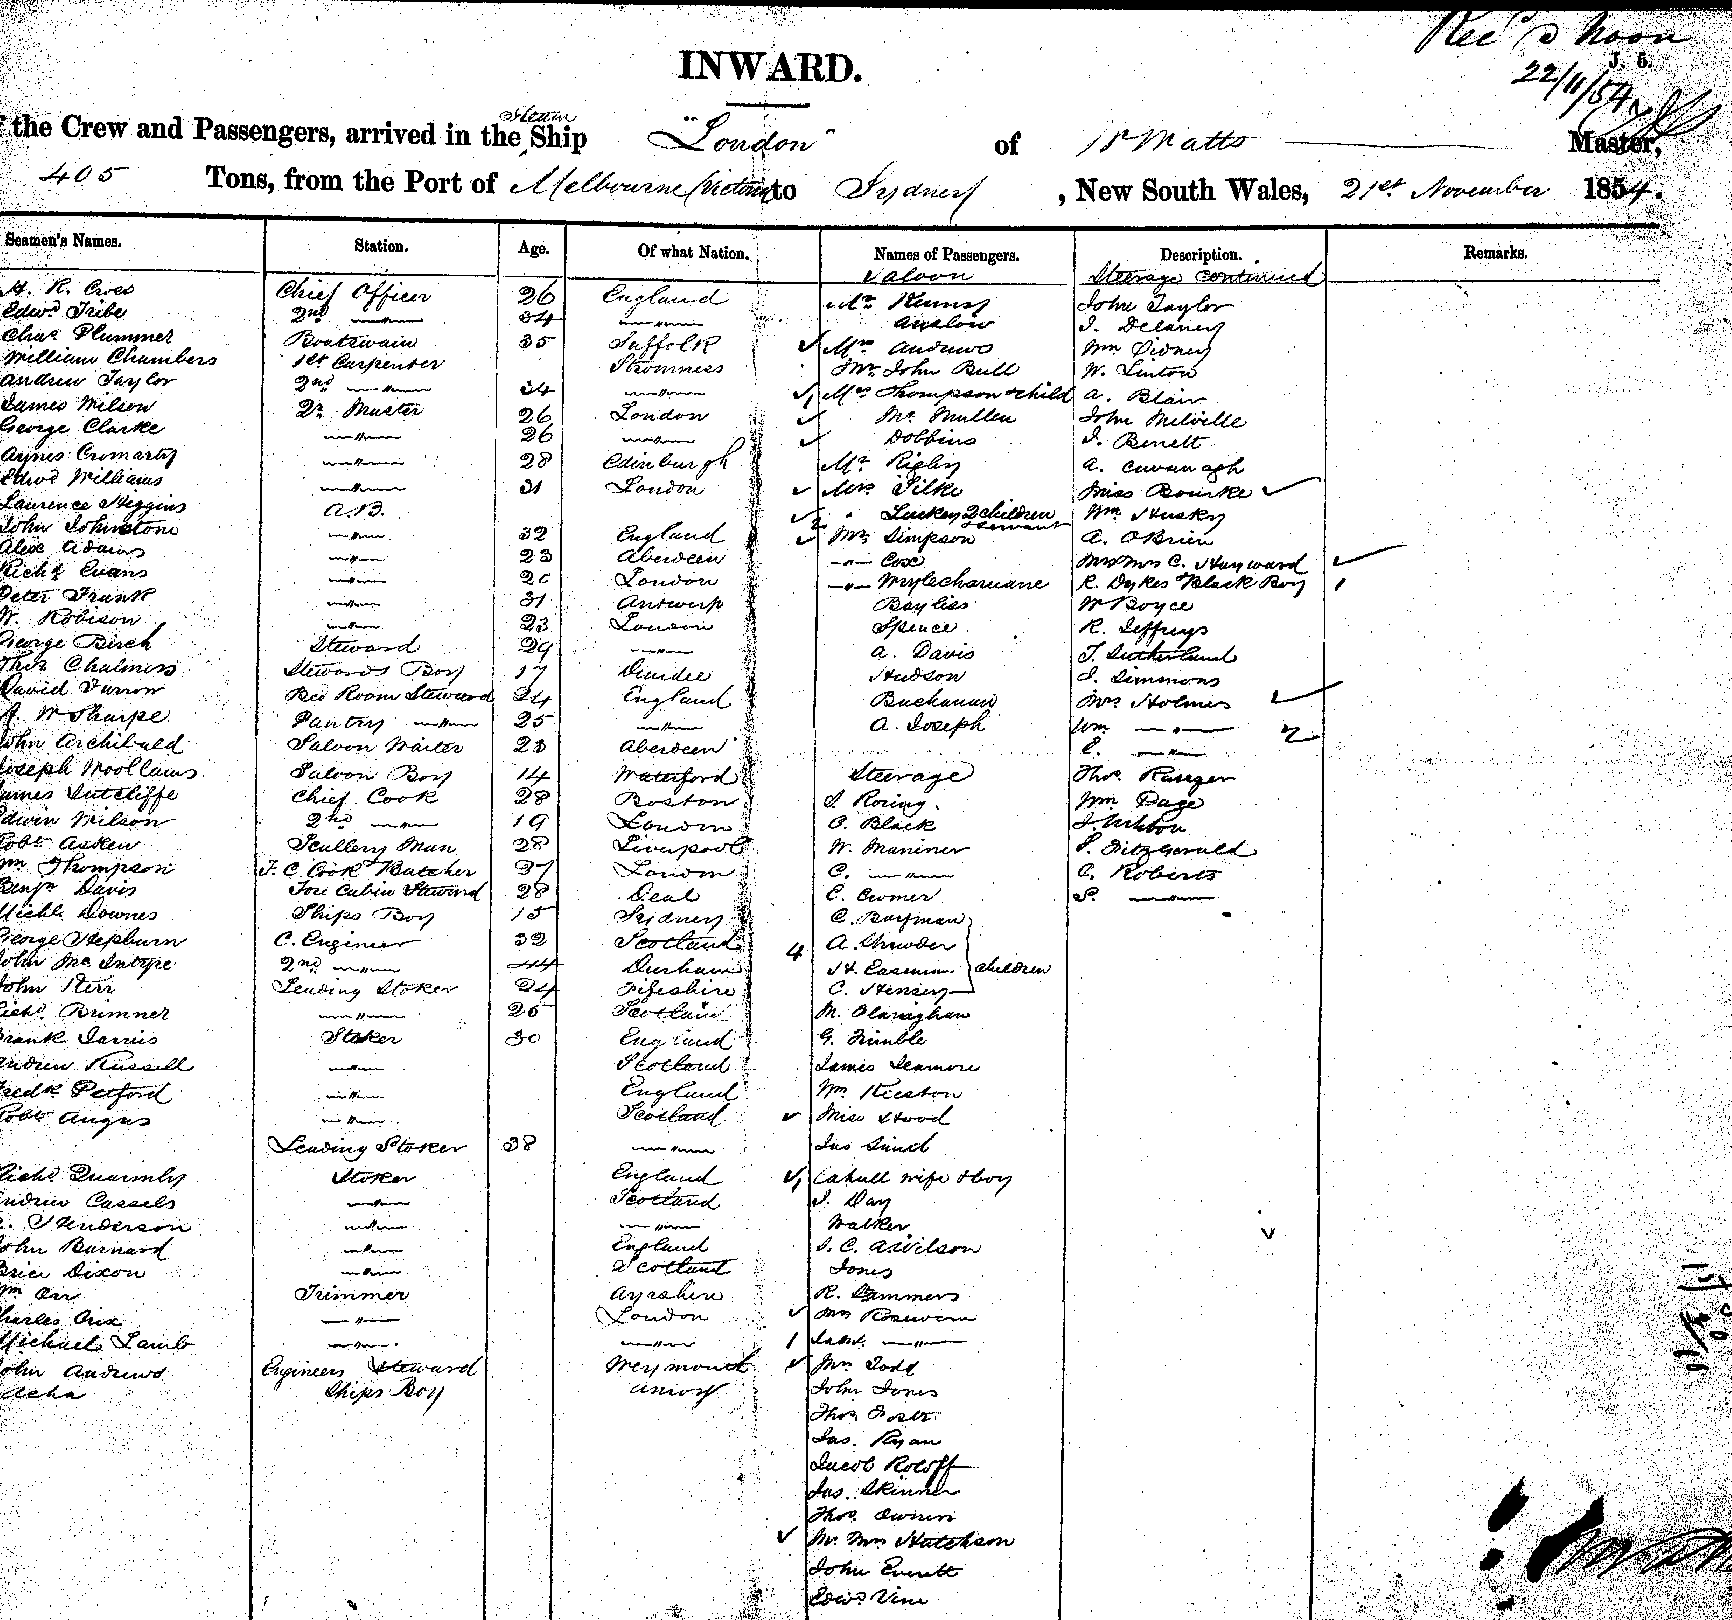 Rec'd Noon
22/11/54
INWARD.
the Crew and Passengers, arrived in the Steam Ship "London" of Watts Master,
405 Tons, from the Port of Melbourne Victoria to Sydney, New South Wales, 21st November 1854.
Seamen's Names. Station. Age. Of what Nation. Names of Passengers. Description. Remarks.
Saloon Steerage continued
Chief Officer 26 England Mr John Taylor
Edwd Tribe 2nd —"— 34 —"— J. Delaney
Chas Plummer Boatswain 35 Suffolk Mrs Andrews Wm Sidney
William Chambers 1st Carpenter Stromness Mr John Bull W. Linton
Andrew Taylor 2nd —"— 34 —"— Mrs Thompson & child A. Blair
James Wilson Qr Master 26 London Mr Mullen John Melville
George Clarke —"— 26 —"— Dobbins J. Benett
Cromarty —"— 28 Edinburgh Mr Rigby A. Cavanagh
Edwd Williams —"— 31 London Mrs Silke Miss Bourke
Laurence Higgins A.B. " 2 children & servant Wm Husky
John Johnstone —"— 32 England Mr Simpson A. OBrien
Alex Adams —"— 23 Aberdeen —"— Cox Mr & Mrs C. Hayward
Richd Evans —"— 26 London —"— R. Dykes & Black Boy
Peter Frank —"— 31 Antwerp Bayliss W Boyce
W. Robison —"— 23 London Spence R. Jeffreys
George Birch Steward 29 —"— A. Davis J. Sutherland
Thos Chalmers Stewards Boy 17 Dundee Hudson J. Simmons
David Bed Room Steward 24 England Buchanan Mrs Holmes
W Sharpe Pantry —"— 25 —"— A. Joseph Wm —"—
John Archibald Saloon Waiter 23 Aberdeen E. —"—
Joseph Woollams Saloon Boy 14 Waterford Steerage Thos Ranger
James Sutcliffe Chief Cook 28 Boston J. Wm Page
Edwin Wilson 2nd —"— 19 London O. Black
Robt Askew Scullery Man 28 Liverpool W. Mariner Fitzgerald
Wm Thompson F. C. Cook & Butcher 37 London C. —"— C. Roberts
Benjn Davis Fore Cabin Steward 28 Deal E. S. —"—
Michl Downes Ships Boy 15 Sydney
George Hepburn C. Engineer 32 Scotland 4 A.
John McIntyre 2nd —"— 44 Durham children
John Kerr Leading Stoker 24 Fifeshire C. Hensey
Richd Brimner —"— 25 Scotland M.
Frank Jarvis Stoker 30 England G. Kimble
Andrew Russell —"— Scotland James Seamore
Fredk Petford —"— England Wm
Robt Angus —"— Scotland Miss Hood
Leading Stoker 38 —"— Jas
Richd Quarmby Stoker England Cahill wife & boy
Andrew Cassels —"— Scotland J. Day
Henderson —"— —"— Walker
John Barnard —"— England Wilson
Brice Dixon —"— Scotland Jones
Wm Orr Trimmer Ayrshire R. Sammers
Charles —"— London Mrs
Michael Lamb —"— —"— —"—
John Andrews Engineers Steward Weymouth Mrs Todd
Ships Boy John Jones
Thos
Jas. Ryan
Jacob Roloff
Jas. Skinner
Thos
Mr Mrs Hutchson
John Everett
Edwd Vine